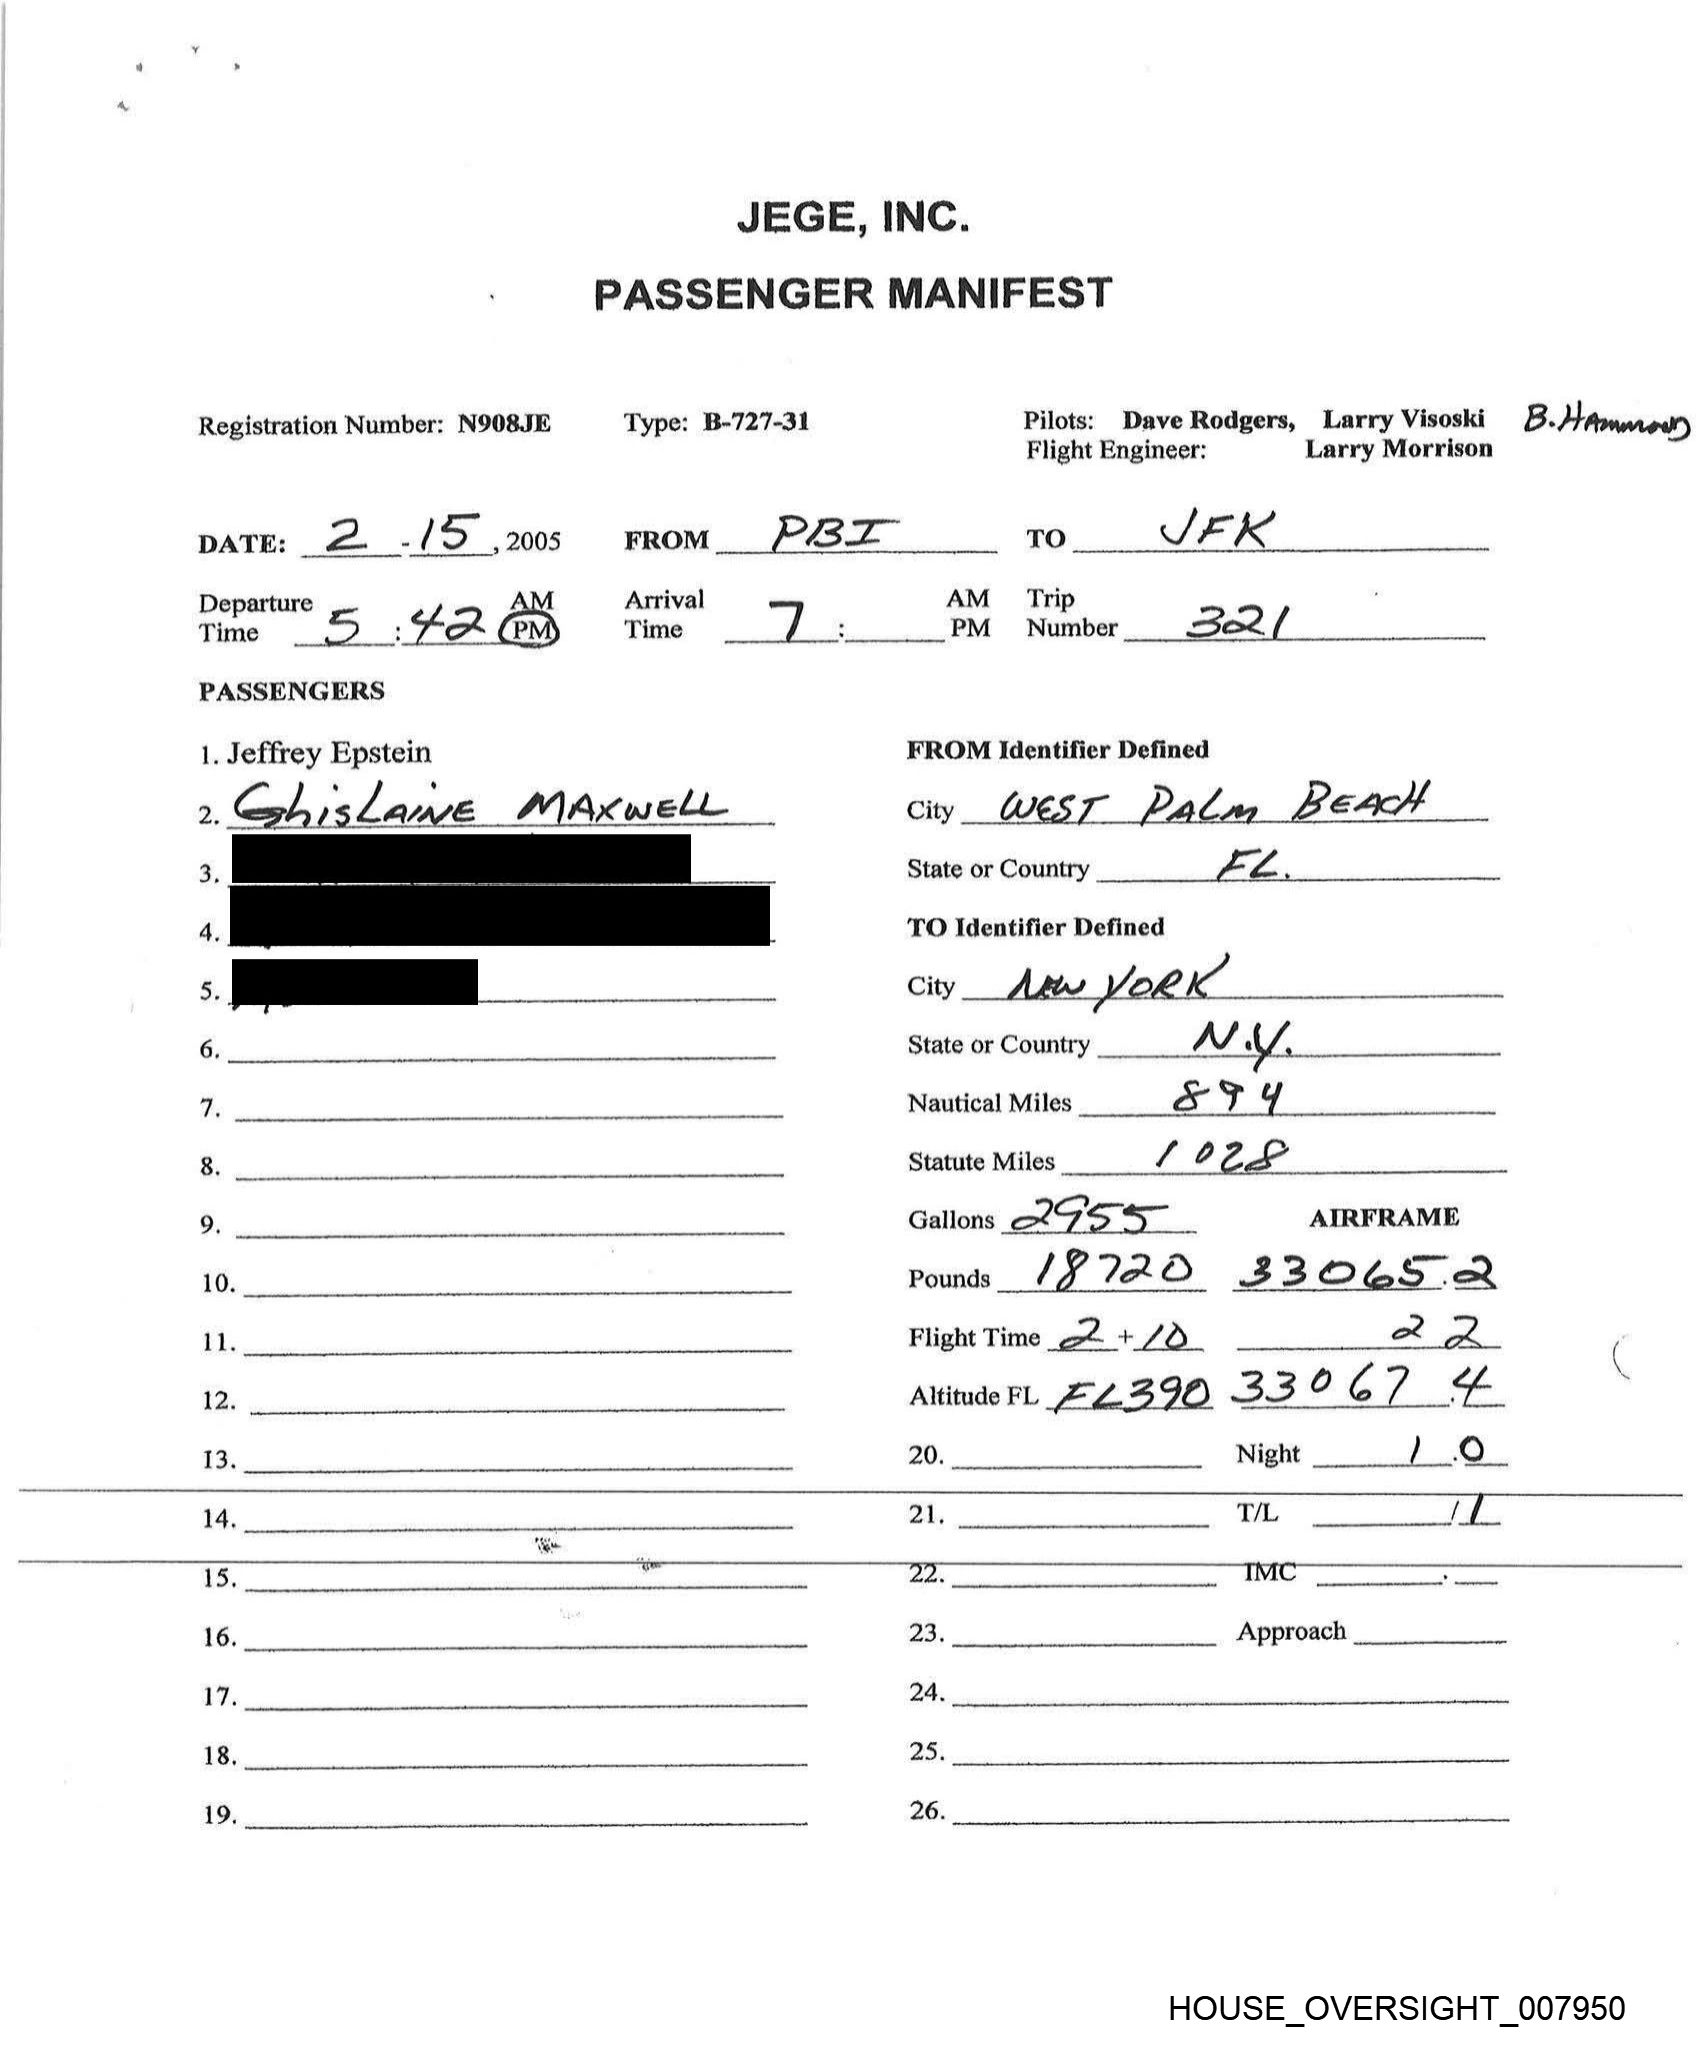 JEGE, INC.
PASSENGER MANIFEST
Registration Number: N908JE Type: B-727-31 Pilots: Dave Rodgers, Larry Visoski B. Hammond
Flight Engineer: Larry Morrison
DATE: 2 - 15, 2005 FROM PBI TO JFK
Departure Time 5 : 42 AM PM Arrival Time 7 : AM PM Trip Number 321
PASSENGERS
1. Jeffrey Epstein FROM Identifier Defined
2. GhisLaine MAXWELL City WEST PALM BEACH
3. State or Country FL.
4. TO Identifier Defined
5. City NEW YORK
6. State or Country N.Y.
7. Nautical Miles 894
8. Statute Miles 1028
9. Gallons 2955 AIRFRAME
10. Pounds 18720 33065.2
11. Flight Time 2 + 10 2 2
12. Altitude FL FL390 33067.4
13. 20. Night 1.0
14. 21. T/L 1/1
15. 22. IMC .
16. 23. Approach
17. 24.
18. 25.
19. 26.
HOUSE_OVERSIGHT_007950